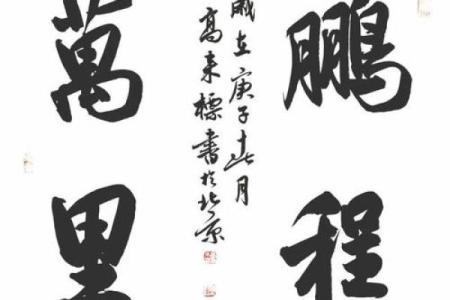 鵬程
歲在庚子月
高来標書於北京
萬里